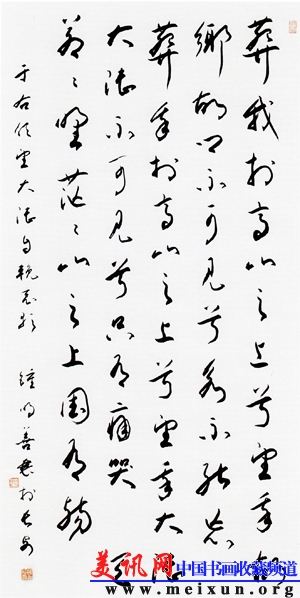 葬我於高山之上兮望我故
鄉故鄉不可見兮永不能忘
葬我於高山之上兮望我大陸
大陸不可見兮只有痛哭天
蒼々野茫々山之上國有殤
于右任望大陸 鍾明善書於長安
美讯网 中国书画收藏频道
www.meixun.org